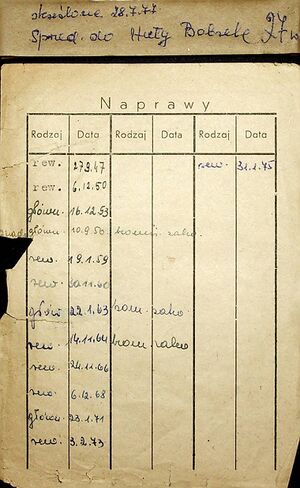 skreślono 28.7.77
Sprzed. do Huty Bobrek
Naprawy
Rodzaj Data Rodzaj Data Rodzaj Data
rew. 27.9.47 rew. 31.1.75
rew. 6.12.50
główn. 16.12.53
główn. 10.9.56
rew. 19.1.59
rew. 30.11.60
główn 22.1.63 kom. zako.
rew. 14.11.64 kom. zako
rew. 24.11.66
rew. 6.12.68
główn 23.1.71
rew. 3.2.73